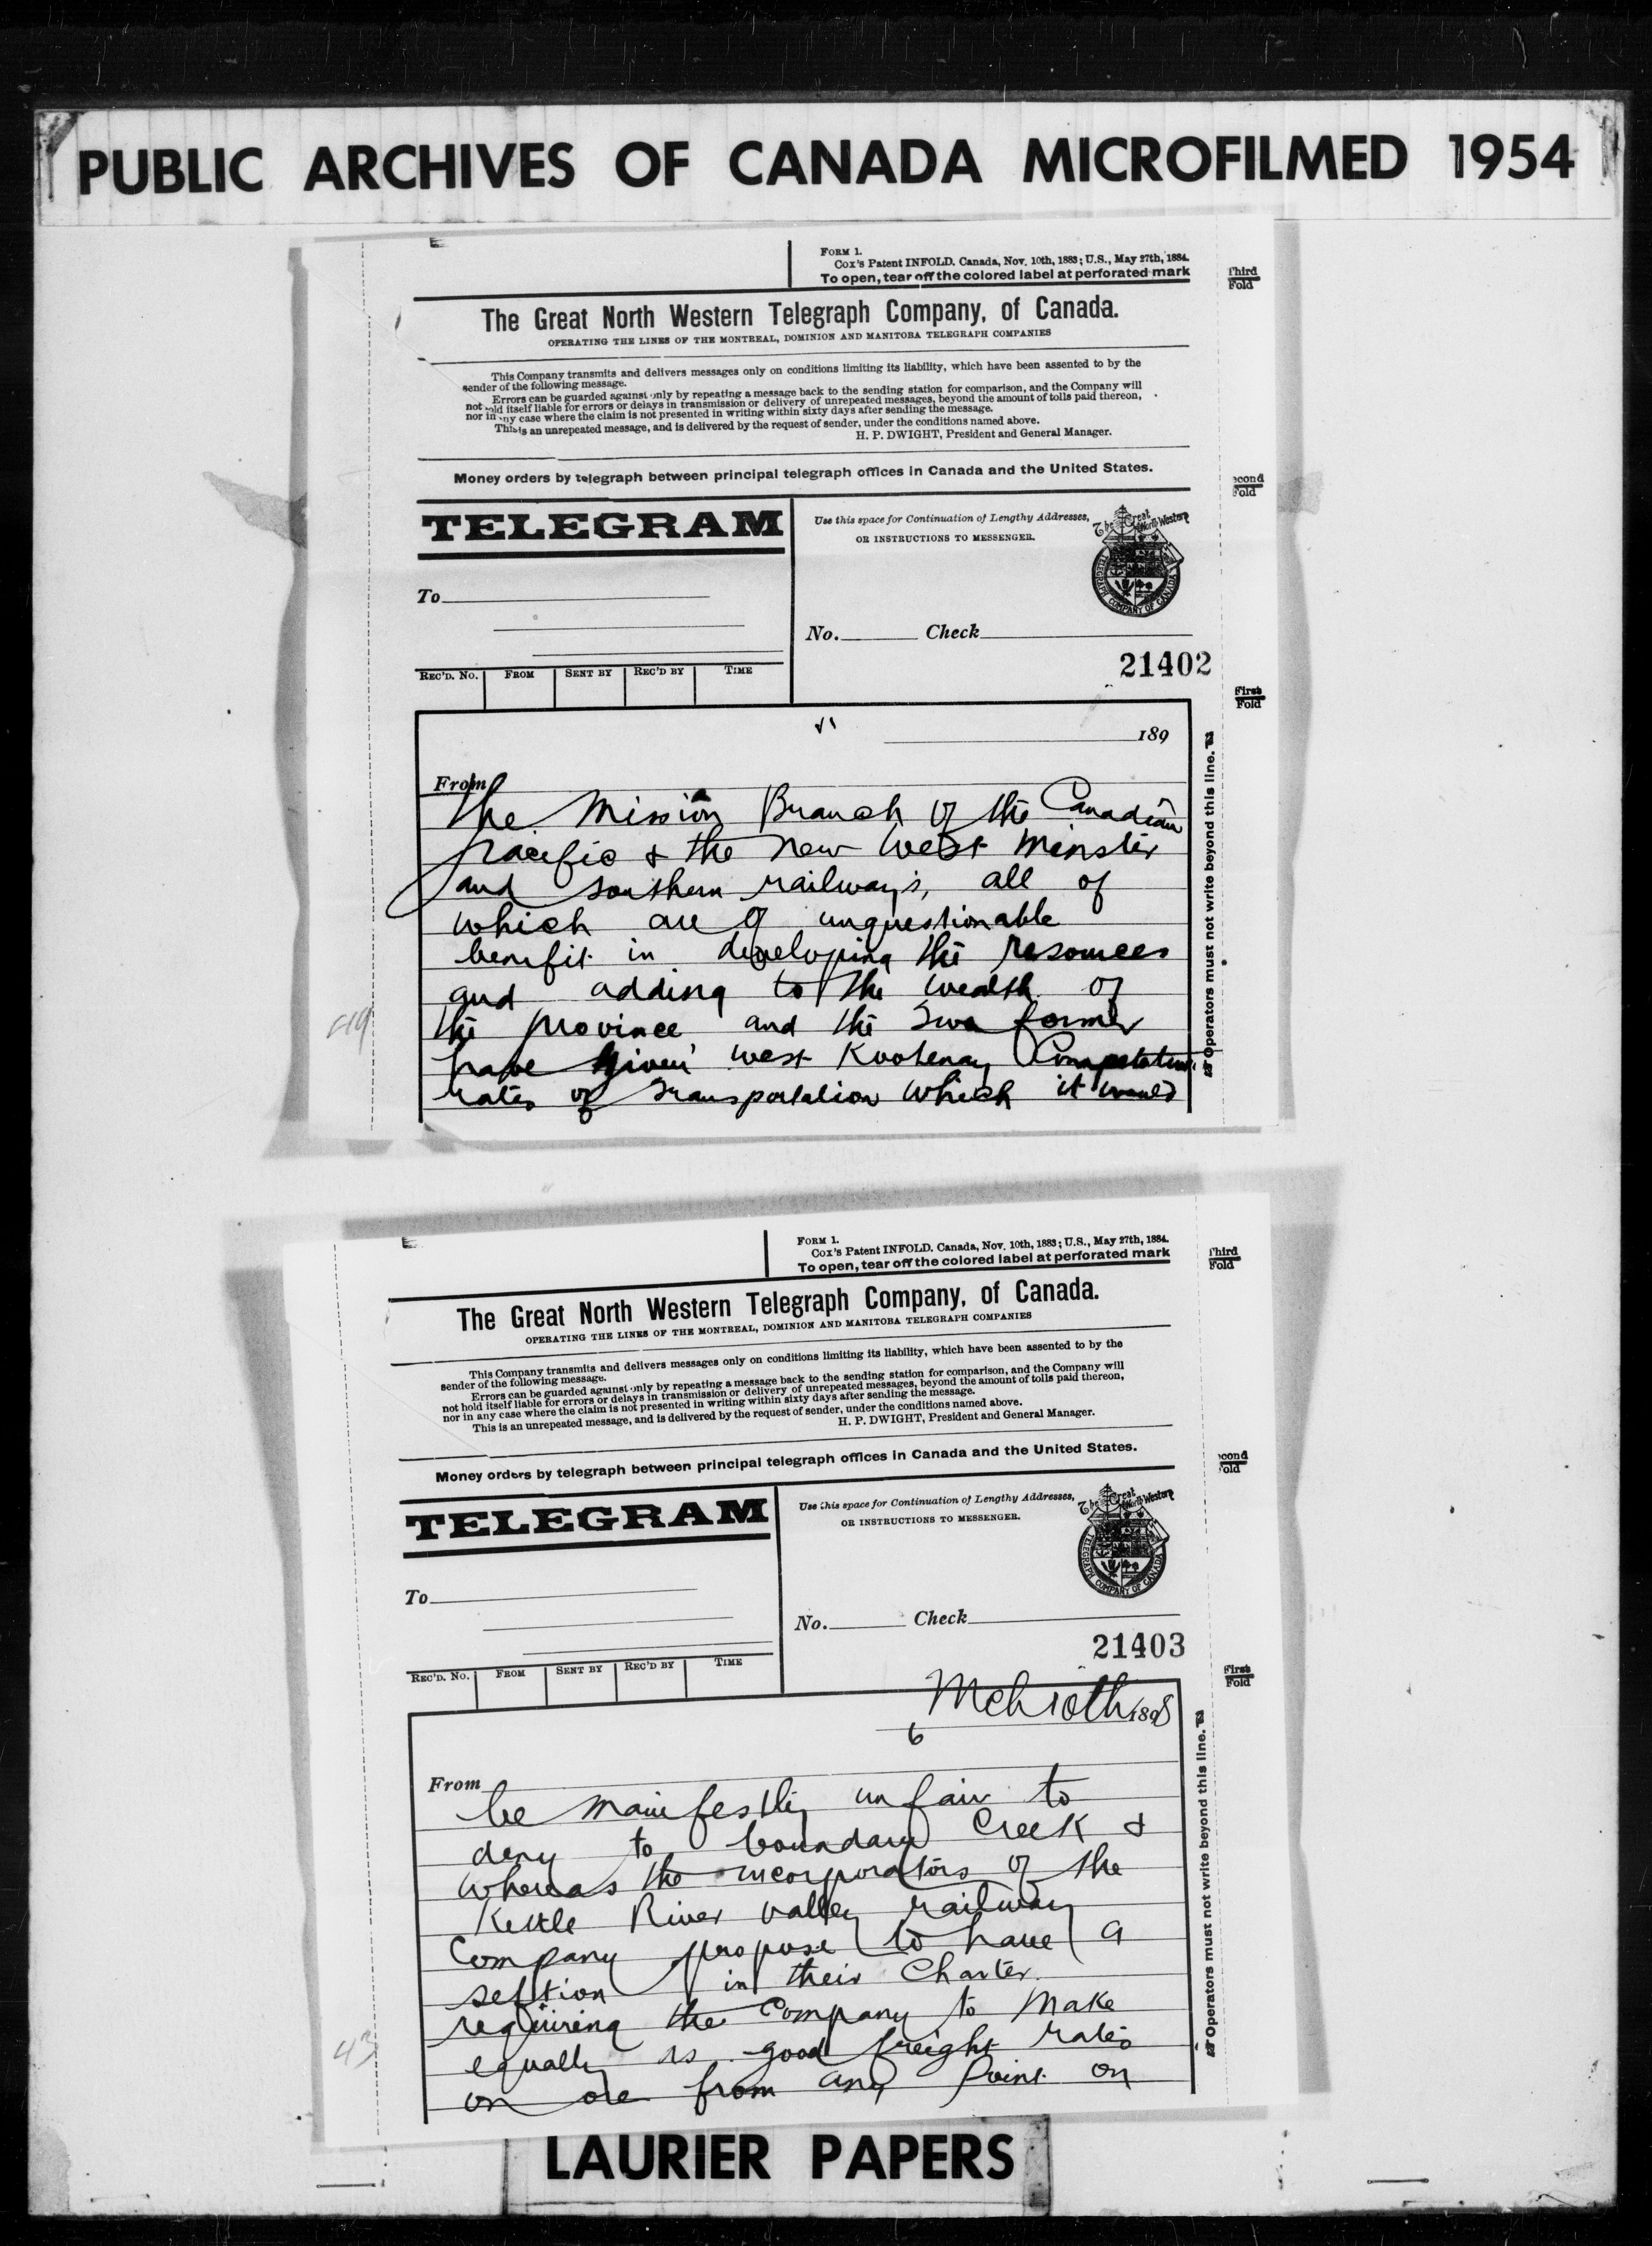 PUBLIC ARCHIVES OF CANADA MICROFILMED 1954
FORM 1.
Cox's Patent INFOLD. Canada, Nov. 10th, 1883; U.S., May 27th, 1884.
To open, tear off the colored label at perforated mark
Third
Fold
The Great North Western Telegraph Company, of Canada.
OPERATING THE LINES OF THE MONTREAL, DOMINION AND MANITOBA TELEGRAPH COMPANIES
This Company transmits and delivers messages only on conditions limiting its liability, which have been assented to by the
sender of the following message.
Errors can be guarded against only by repeating a message back to the sending station for comparison, and the Company will
not hold itself liable for errors or delays in transmission or delivery of unrepeated messages, beyond the amount of tolls paid thereon,
nor in any case where the claim is not presented in writing within sixty days after sending the message.
This is an unrepeated message, and is delivered by the request of sender, under the conditions named above.
H. P. DWIGHT, President and General Manager.
Money orders by telegraph between principal telegraph offices in Canada and the United States.
econd
Fold
TELEGRAM
Use this space for Continuation of Lengthy Addresses,
OR INSTRUCTIONS TO MESSENGER.
The Great North Western
TELEGRAPH COMPANY OF CANADA
To
No. Check
21402
REC'D. NO. FROM SENT BY REC'D BY TIME
First
Fold
189
From
the Mission Branch of the Canadian
pacific & the new West minster
and southern railways, all of
which are of unquestionable
benefit in developing the resources
and adding to the wealth of
the province and the two former
have given west Kootenay Competative
rates of transportation which it would
Operators must not write beyond this line.
FORM 1.
Cox's Patent INFOLD. Canada, Nov. 10th, 1883; U.S., May 27th, 1884.
To open, tear off the colored label at perforated mark
Third
Fold
The Great North Western Telegraph Company, of Canada.
OPERATING THE LINES OF THE MONTREAL, DOMINION AND MANITOBA TELEGRAPH COMPANIES
This Company transmits and delivers messages only on conditions limiting its liability, which have been assented to by the
sender of the following message.
Errors can be guarded against only by repeating a message back to the sending station for comparison, and the Company will
not hold itself liable for errors or delays in transmission or delivery of unrepeated messages, beyond the amount of tolls paid thereon,
nor in any case where the claim is not presented in writing within sixty days after sending the message.
This is an unrepeated message, and is delivered by the request of sender, under the conditions named above.
H. P. DWIGHT, President and General Manager.
Money orders by telegraph between principal telegraph offices in Canada and the United States.
econd
Fold
TELEGRAM
Use this space for Continuation of Lengthy Addresses,
OR INSTRUCTIONS TO MESSENGER.
The Great North Western
TELEGRAPH COMPANY OF CANADA
To
No. Check
21403
REC'D. NO. FROM SENT BY REC'D BY TIME
First
Fold
Mch 10th 1898
6
From
be manifestly unfair to
deny to boundary Creek &
Whereas the incorporators of the
Kettle River valley railway
Company propose to have a
section in their Charter
requiring the Company to make
equally as good freight rates
on ore from any point on
43
Operators must not write beyond this line.
LAURIER PAPERS